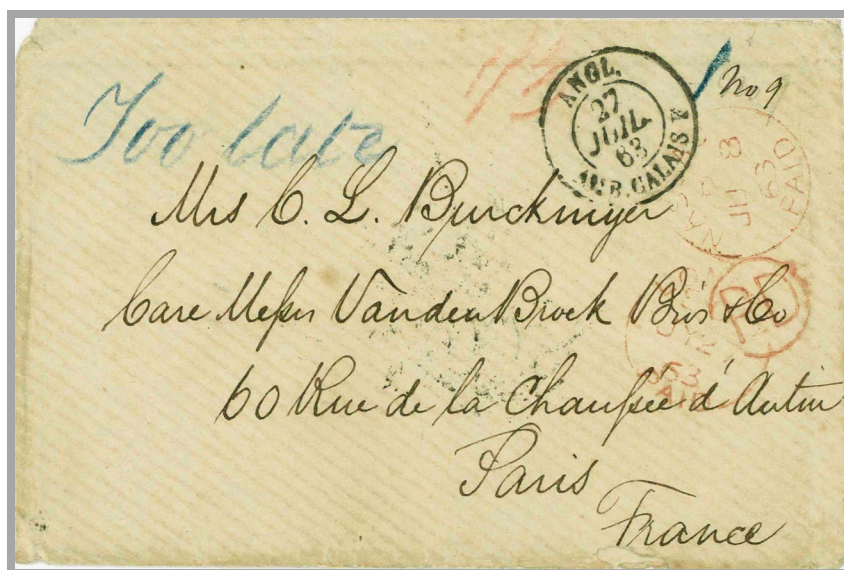 Too late
No 9
ANGL.
27
JUIL.
63
AMB. CALAIS
PAID
63
Mrs C. L. Burckmyer
Care Messrs VandenBroek Bros & Co
PD
63
60 Rue de la Chaussée d'Antin
Paris
France